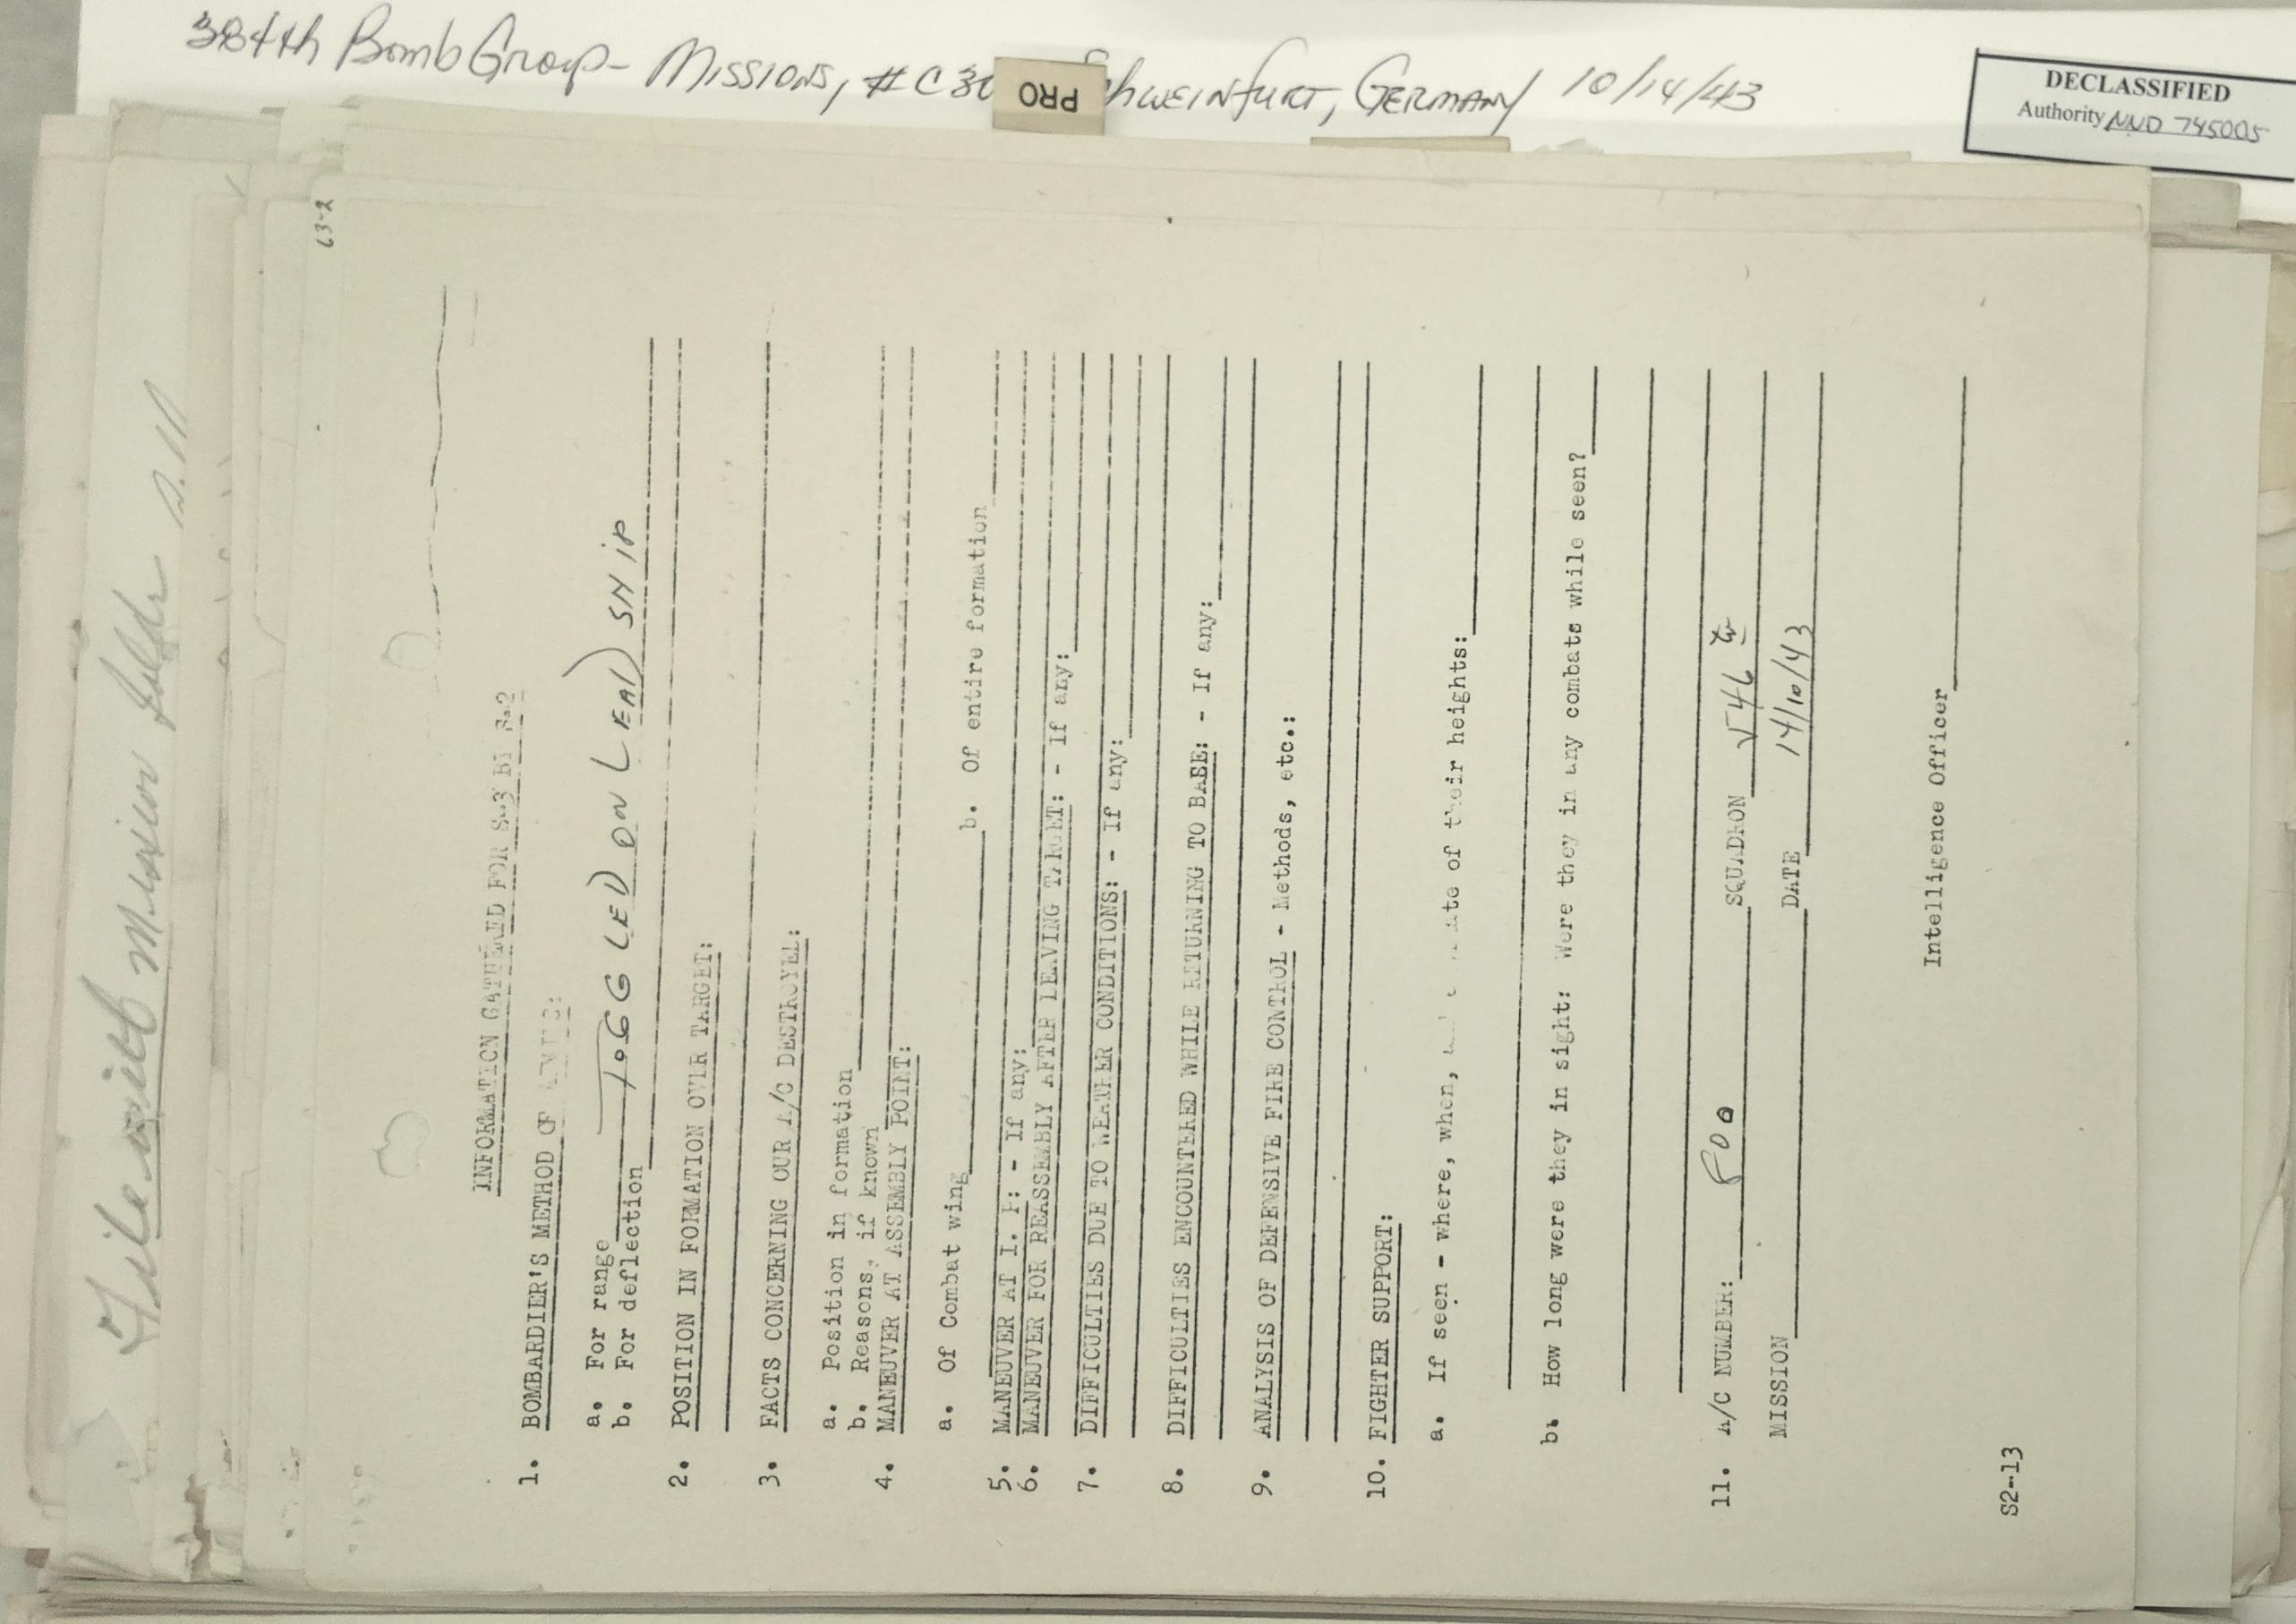 384th Bomb Group - Missions, #C30 Schweinfurt, Germany 10/14/43
PRO
DECLASSIFIED
Authority NND 745005
File with Mission
63-2
INFORMATION GATHERED FOR S-3 BY S-2
1. BOMBARDIER'S METHOD OF
a. For range TOGGLED ON LEAD SHIP
b. For deflection
2. POSITION IN FORMATION OVER TARGET:
3. FACTS CONCERNING OUR A/C DESTROYED:
a. Position in formation
b. Reasons, if known
4. MANEUVER AT ASSEMBLY POINT:
a. Of Combat wing b. Of entire formation
5. MANEUVER AT I. P: - If any:
6. MANEUVER FOR REASSEMBLY AFTER LEAVING TARGET: - If any:
7. DIFFICULTIES DUE TO WEATHER CONDITIONS: - If any:
8. DIFFICULTIES ENCOUNTERED WHILE RETURNING TO BASE: - If any:
9. ANALYSIS OF DEFENSIVE FIRE CONTROL - Methods, etc.:
10. FIGHTER SUPPORT:
a. If seen - where, when, of their heights:
b. How long were they in sight: Were they in any combats while seen?
11. A/C NUMBER: 800 SQUADRON 546
MISSION DATE 14/10/43
Intelligence Officer
S2-13